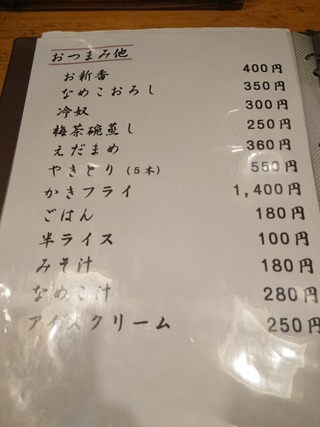 おつまみ他
お新香 400円
なめこおろし 350円
冷奴 300円
梅茶碗蒸し 250円
えだまめ 360円
やきとり(5本) 550円
かきフライ 1,400円
ごはん 180円
半ライス 100円
みそ汁 180円
なめこ汁 280円
アイスクリーム 250円